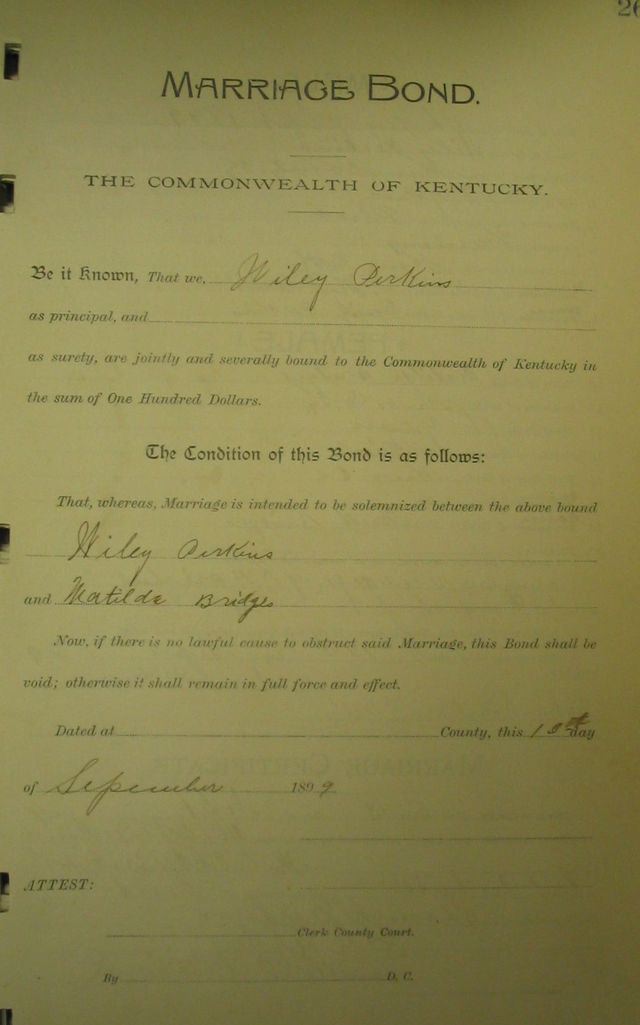 26
MARRIAGE BOND.
THE COMMONWEALTH OF KENTUCKY.
Be it Known, That we, Wiley Perkins
as principal, and
as surety, are jointly and severally bound to the Commonwealth of Kentucky in
the sum of One Hundred Dollars.
The Condition of this Bond is as follows:
That, whereas, Marriage is intended to be solemnized between the above bound
Wiley Perkins
and Matilda Bridges
Now, if there is no lawful cause to obstruct said Marriage, this Bond shall be
void; otherwise it shall remain in full force and effect.
Dated at County, this day
of September 1899
ATTEST:
Clerk County Court.
By D. C.